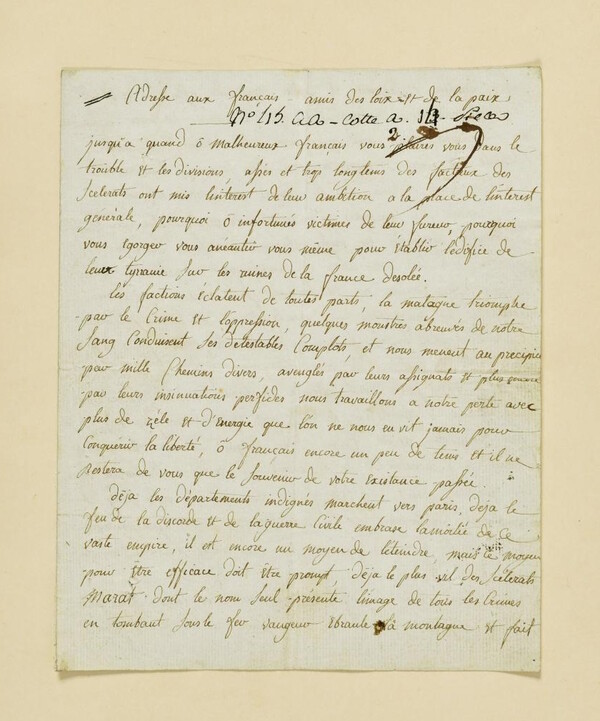 Adresse aux français amis des loix et de la paix
N° 415. aa - Cotte a. 2
jusqu'a quand ô malheureux français vous plaires vous dans le
trouble et les divisions, assés et trop longtems des factieux des
Scelerats ont mis linterest de leur ambition a la place de linterest
generale, pourquoi ô infortunés victimes de leur fureur, pourquoi
vous égorger vous anéantir vous même pour établir lédifice de
leur tyranie sur les ruines de la france desolée.
les factions éclatent de toutes parts, la montagne triomphe
par le Crime et l'oppression, quelques monstres abreuvés de notre
Sang Conduisent Ses détestables Complots, et nous menent au precipice
par mille Chemins divers, aveuglés par leurs assignats et plus encore
par leurs insinuations perfides nous travaillons a notre perte avec
plus de zèle et d'énergie que l'on ne nous en vit jamais pour
Conquérir la liberté, ô français encore un peu de tems et il ne
Restera de vous que le Souvenir de votre existance passée.
déja les départements indignés marchent vers paris, déja le
feu de la discorde et de la guerre Civile embrase la moitié de ce
vaste empire, il est encore un moyen de l'éteindre, mais le moyen
pour être efficace doit être prompt, déja le plus vil des Scélérats
Marat dont le nom seul présente limage de tous les Crimes
en tombant sous le fer vangeur ebranle la montagne et fait